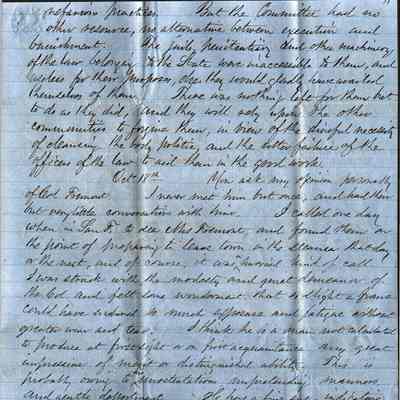 nefarious practices. But the Committee had no
other resource, no alternative between execution and
banishment. The jails, penitentiary and other machinery
of the law belonging to the State were inaccessible to them, and
useless for their purposes, else they would gladly have availed
themselves of them. There was nothing left for them but
to do as they did, and they will rely upon the other
communities to forgive them, in view of the dreadful necessity
of cleansing the body politic, and the utter failure of the
officers of the law to aid them in the good work.
Oct 18th You ask my opinion personally
of Col Fremont. I never met him but once, and had then
but very little conversation with him. I called one day
when in San F. to see Mrs Fremont, and found them on
the point of preparing to leave town in the steamer that day
or the next, and of course, it was hurried kind of call
I was struck with the modesty and quiet demeanor of
the Col and felt some wonderment that so slight a frame
could have endured so much exposure and fatigue without
greater wear and tear. I think he is a man not calculated
to produce at first sight or on first acquaintance any great
impression of might or distinguished ability. This is
probably owing to unostentatious unpretending manners
and gentle deportment. He has a fine